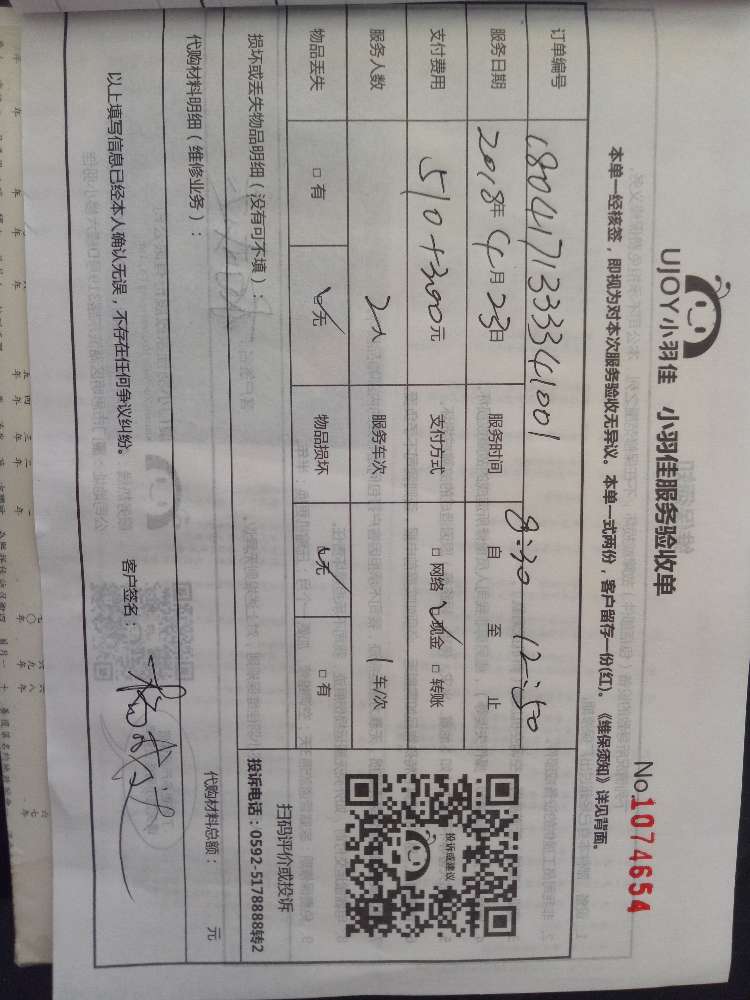 UJOY小羽佳 小羽佳服务验收单
No.1074654
本单一经核签，即视为对本次服务验收无异议。本单一式两份，客户留存一份(红)。《维保须知》详见背面。
订单编号 1804171333341001
服务日期 2018年4月23日 服务时间 8:30 自 至 12:50 止
支付费用 510+300元 支付方式 □ 网络 ✓现金 □ 转账
服务人数 2人 服务车次 1车/次
物品丢失 □ 有 ✓无 物品损坏 ✓无 □ 有
损坏或丢失物品明细（没有可不填）：
投诉或建议
扫码评价或投诉
投诉电话：0592-5178888转2
代购材料明细（维修业务）： 代购材料总额： 元
以上填写信息已经本人确认无误，不存在任何争议纠纷。 客户签名：